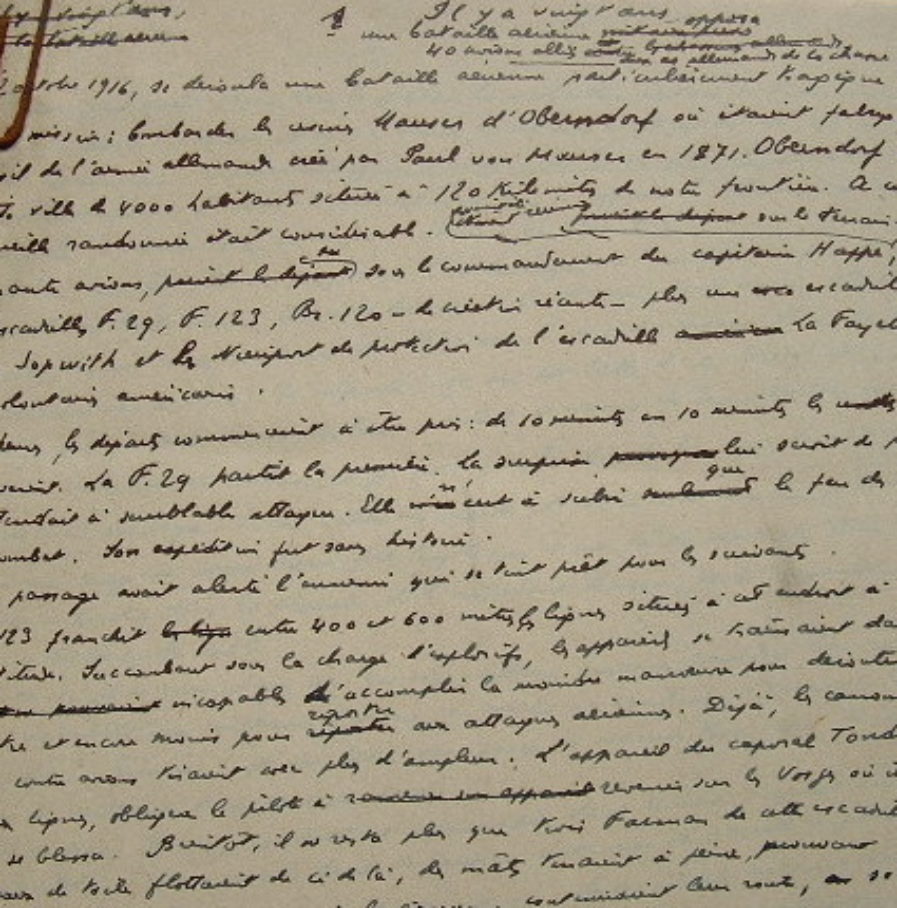 Il y a vingt ans
une bataille aérienne opposa
40 avions alliés aux as allemands de la chasse
octobre 1916, se déroula une bataille aérienne particulièrement tragique
mission : bombarder les usines Mauser d'Oberndorf où étaient fabriqu
sil de l'armée allemande créé par Paul von Mauser en 1871. Oberndorf
te ville de 4000 habitants située à 120 kilomètres de notre frontière. A c
reille randonnée était considérable. sur le terrain
rante avions, sous le commandement du capitaine Happe,
scadrilles F. 29, F. 123, Br. 120 – de création récente – plus une escadrill
Sopwith et les Nieuport de protection de l'escadrille La Fayet
olontaires américains.
heures, les départs commencèrent à être pris : de 10 minutes en 10 minutes les
La F. 29 partit la première. La surprise lui servit de
tendait à semblable attaque. Elle n'eut à subir que le feu des
combat. Son expédition fut sans histoire.
passage avait alerté l'ennemi qui se tint prêt pour les suivants.
123 franchit entre 400 et 600 mètres les lignes situées à cet endroit à
Succombant sous la charge d'explosifs, les appareils se traînaient da
incapables d'accomplir la moindre manœuvre pour dérouter
tre et encore moins pour riposter aux attaques aériennes. Déjà, les canons
contre avions tiraient avec plus d'ampleur. L'appareil du caporal Tond
lignes, obligea le pilote à revenir sur les Vosges où i
se blessa. Bientôt, il ne resta plus que trois Farman de cette escadri
de toile flottaient de ci de là, des mâts tenaient à peine, pouvant
continuaient leur route, se